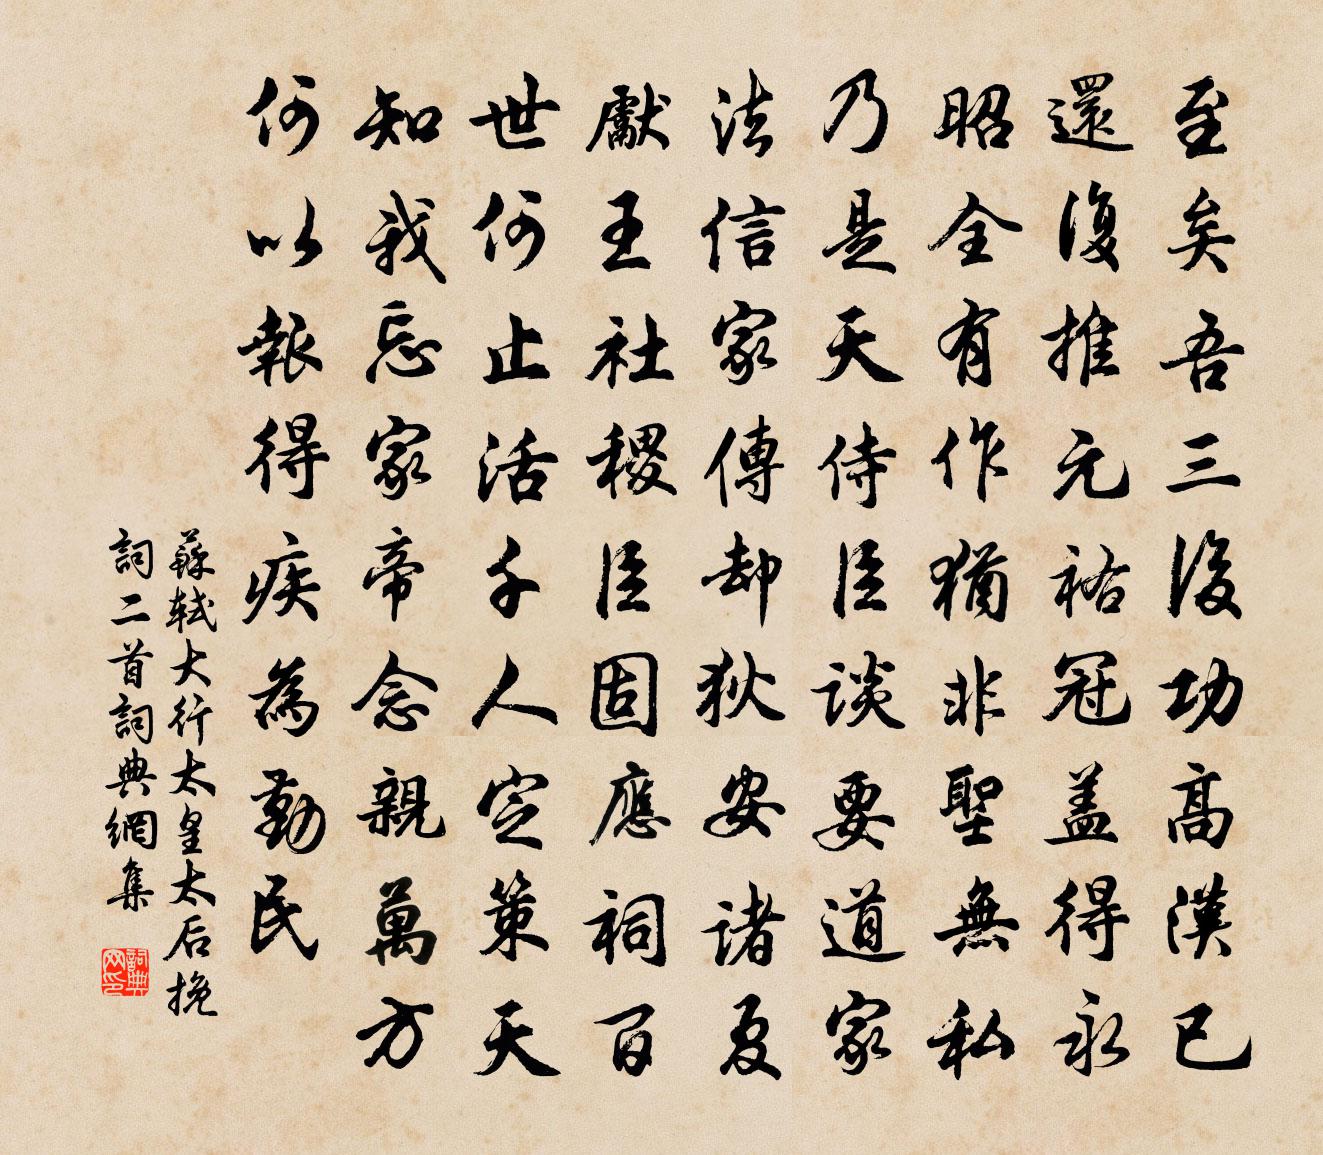 至矣吾三後功高漢已
還復推元祐冠盖得永
昭全有作猶非聖無私
乃是天侍臣談要道家
法信家傳却狄安諸夏
獻王社稷臣固應祠百
世何止活千人定策天
知我忘家帝念親萬方
何以報得疾為勤民
蘇軾大行太皇太后挽
詞二首詞典網集
詞典网印